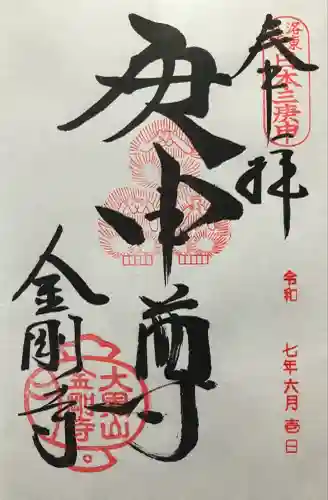 奉拝
洛東
日本三庚申
庚申尊
令和
七年六月壱日
金剛寺
大黒山
金剛寺